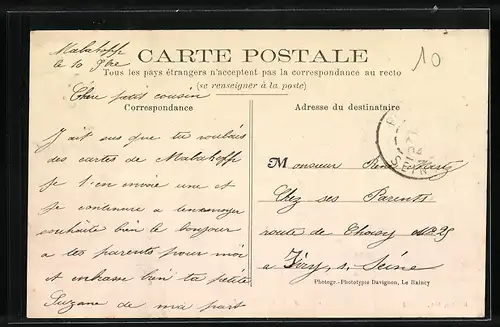 Malakoff
le 10 9bre
CARTE POSTALE
10
Tous les pays étrangers n'acceptent pas la correspondance au recto
(se renseigner à la poste)
Cher petit cousin
Correspondance
Adresse du destinataire
J'ait sus que tu voulais
des cartes de Malakoff
je t'en envoie une et
je continure a ten envoyer
souhaite bien le bonjour
a tes parents pour moi
et enbrasse bien ta petite
Suzane de ma part
Monsieur René
Chez ses Parents
route de Choisy No 25
a Ivry s. Seine
Photogr.-Phototypie Davignon, Le Raincy